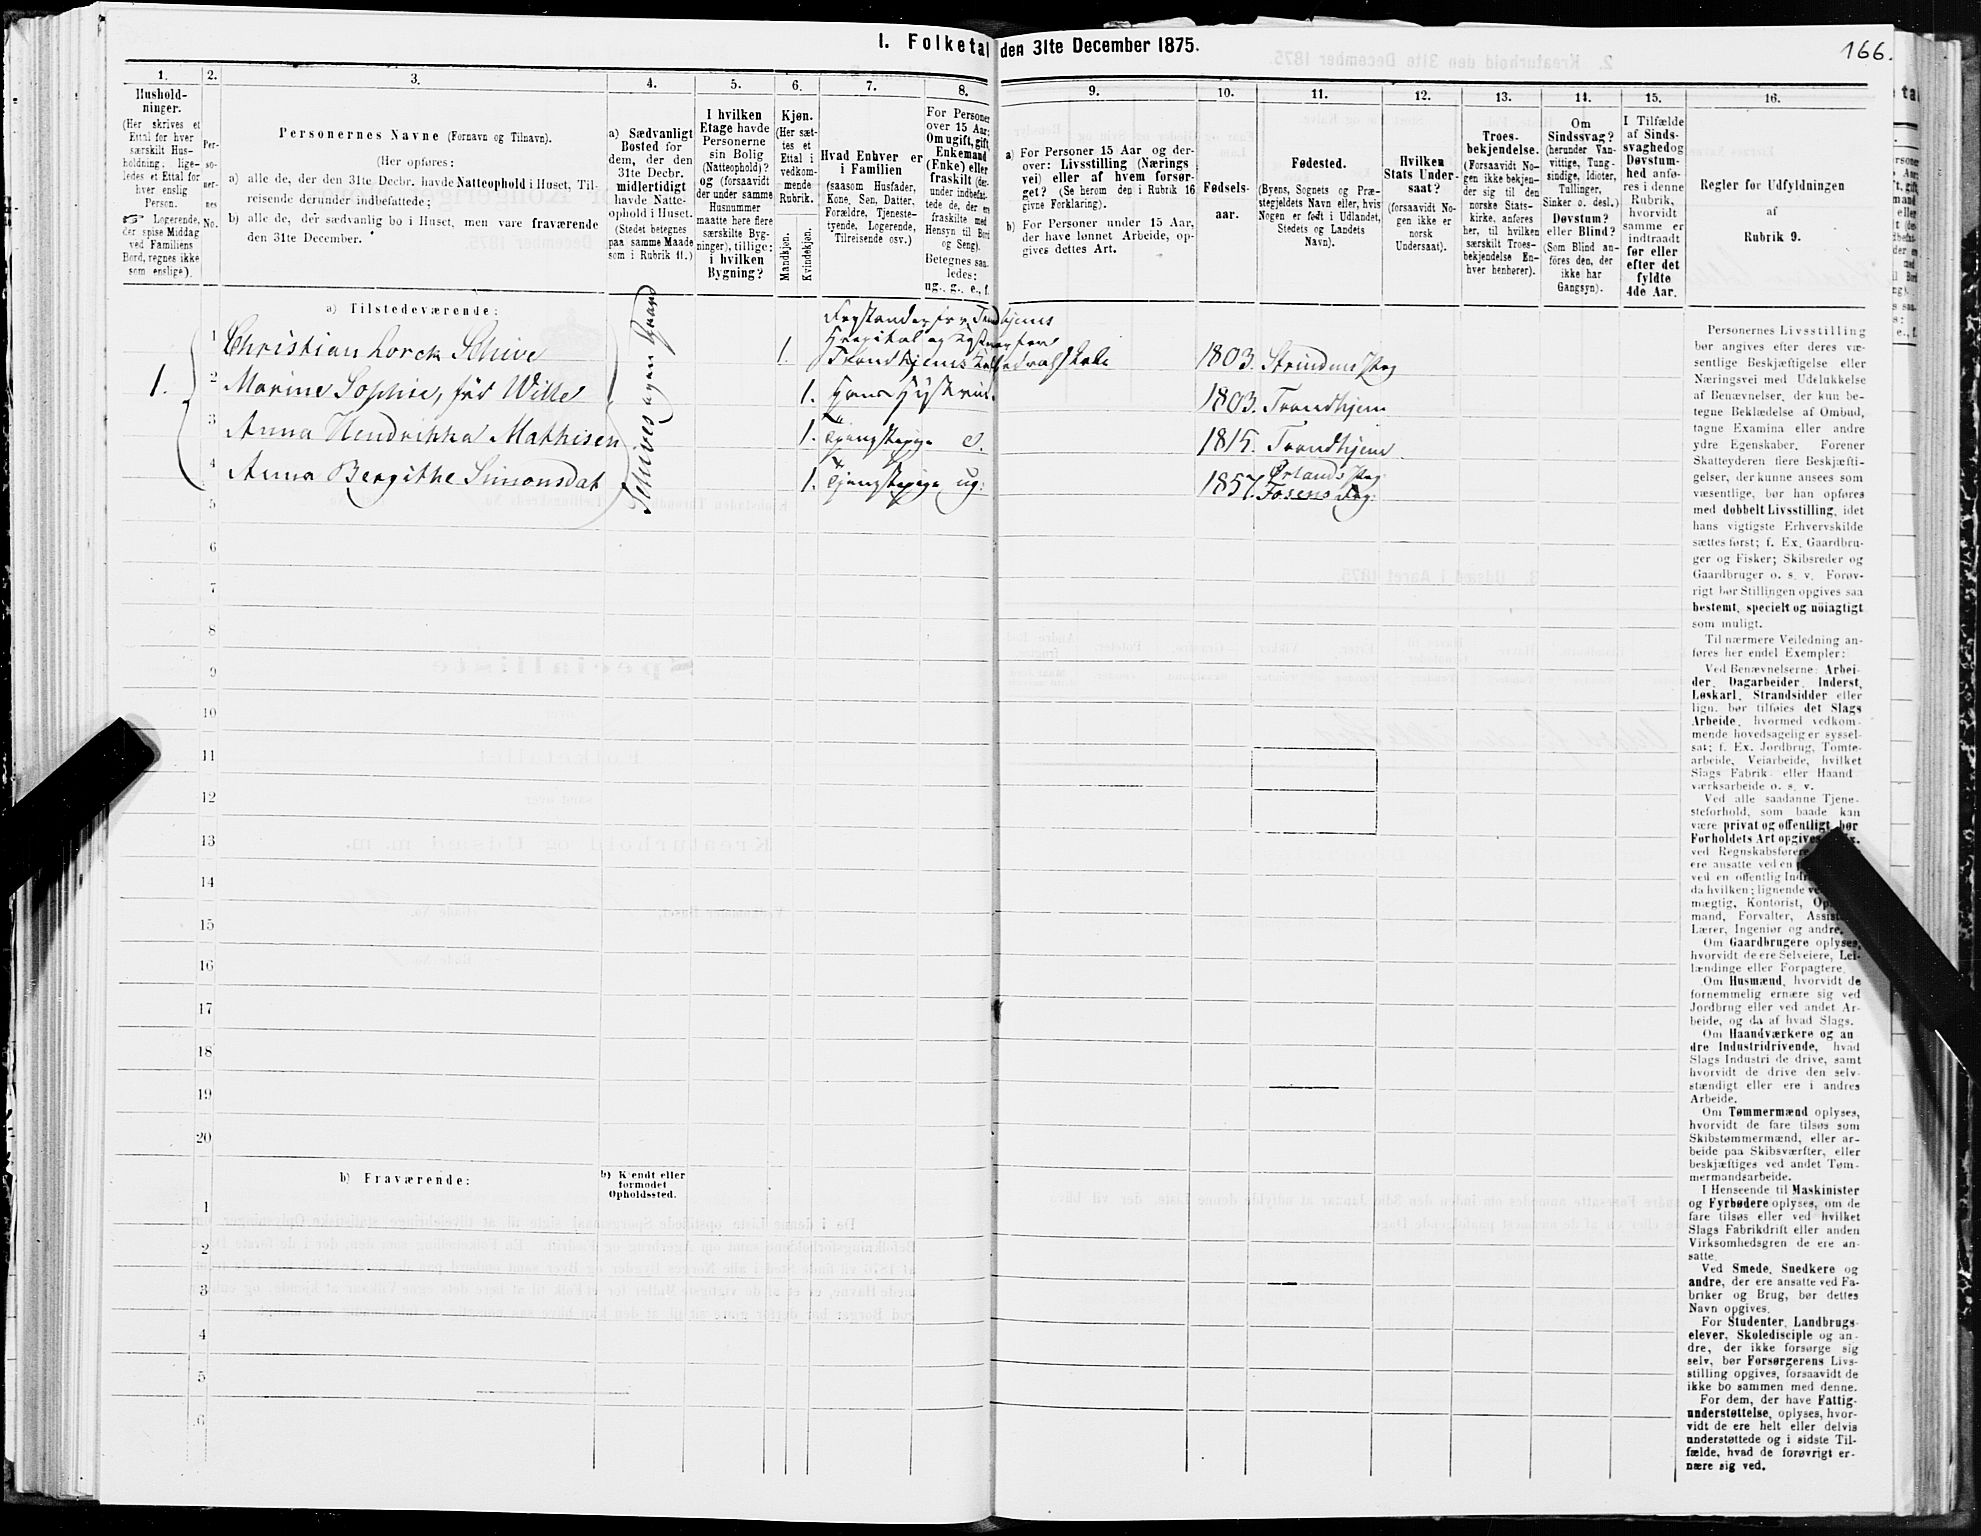 1. Folketal den 31te December 1875.
166.
1.
Hushold-
ninger.
(Her skrives et
Ettal for hver
særskilt Hus-
holdning; lige-
ledes et Ettal for
hver enslig
Person.
☞ Logerende,
der spise Middag
ved Familiens
Bord, regnes ikke
som enslige).
2.
Per-
so-
ner-
nes
No.
3.
Personernes Navne (Fornavn og Tilnavn).
(Her opføres:
a) alle de, der den 31te Decbr. havde Natteophold i Huset, Til-
reisende derunder indbefattede;
b) alle de, der sædvanlig bo i Huset, men vare fraværende
den 31te December.
4.
a) Sædvanligt
Bosted for
dem, der den
31te Decbr.
midlertidigt
havde Natte-
ophold i Huset.
(Stedet betegnes
paa samme Maade
som i Rubrik 11.)
5.
I hvilken
Etage havde
Personerne
sin Bolig
(Natteophold)?
og (forsaavidt
der under samme
Husnummer
maatte høre flere
særskilte Byg-
ninger), tillige:
i hvilken
Bygning?
6.
Kjøn.
(Her sæt-
tes et
Ettal i
vedkom-
mende
Rubrik.
Mandkjøn.
Kvindekjøn.
7.
Hvad Enhver er
i Familien
(saasom Husfader,
Kone, Søn, Datter,
Forældre, Tjeneste-
tyende, Logerende,
Tilreisende osv.)
8.
For Personer
over 15 Aar:
Om ugift, gift,
Enkemand
(Enke) eller
fraskilt (der-
under indbefat-
tede de, der er
fraskilte med
Hensyn til Bord
og Seng).
Betegnes saa-
ledes:
ug., g., e., f.
9.
a) For Personer 15 Aar og der-
over: Livsstilling (Nærings
vei) eller af hvem forsør-
get? (Se herom den i Rubrik 16
givne Forklaring).
b) For Personer under 15 Aar,
der have lønnet Arbeide, op-
gives dettes Art.
10.
Fødsels-
aar.
11.
Fødested.
(Byens, Sognets og Præ-
stegjeldets Navn eller, hvis
Nogen er født i Udlandet,
Stedets og Landets
Navn).
12.
Hvilken
Stats Under-
saat?
(forsaavidt No-
gen ikke er
norsk
Undersaat).
13.
Troes-
bekjendelse.
(Forsaavidt No-
gen ikke bekjen-
der sig til den
norske Stats-
kirke, anføres
her, til hvilken
særskilt Troes-
bekjendelse En-
hver henhører).
14.
Om
Sindssvag?
(herunder Van-
vittige, Tung-
sindige, Idioter,
Tullinger,
Sinker o. desl.)
Døvstum?
eller Blind?
(Som Blind an-
føres den, der
ikke har
Gangsyn).
15.
I Tilfælde
af Sinds-
svaghed og
Døvstum-
hed anfø-
res i denne
Rubrik,
hvorvidt
samme er
indtraadt
før eller
efter det
fyldte
4de Aar.
16.
Regler for Udfyldningen
af
Rubrik 9.
a) Tilstedeværende:
1.
1 Christian Lorck Schive 1. Forstander for Trondhjems
Hospital og Kasserer for
Trondhjems Kathedralskole 1803. Strindens Præg
2 Marine Sophie, född Wille 1. Hans Hustru 1803. Trondhjem
3 Anna Hendrikka Mathisen 1. Tjenestepige e. 1815. Trondhjem
4 Anna Bergithe Simonsdat 1. Tjenestepige ug. 1857. Ørlands Præg
Fosens Fog.
Schives egen Gaard
5
6
7
8
9
10
11
12
13
14
15
16
17
18
19
20
b) Fraværende:
b) Kjendt eller
formodet
Opholdssted.
1
2
3
4
5
6
Personernes Livsstilling
bør angives efter deres væ-
sentlige Beskjæftigelse eller
Næringsvei med Udelukkelse
af Benævnelser, der kun be-
tegne Beklædelse af Ombud,
tagne Examina eller andre
ydre Egenskaber. Forener
Skatteyderen flere Beskjæfti-
gelser, der kunne ansees som
væsentlige, bør han opføres
med dobbelt Livsstilling, idet
hans vigtigste Erhvervskilde
sættes først; f. Ex. Gaardbru-
ger og Fisker; Skibsreder og
Gaardbruger o. s. v. Forøv-
rigt bør Stillingen opgives saa
bestemt, specielt og nöiagtigt
som muligt.
Til nærmere Veiledning an-
føres her endel Exempler:
Ved Benævnelserne: Arbei-
der, Dagarbeider, Inderst,
Løskarl, Strandsidder eller
lign. bør tilføies det Slags
Arbeide, hvormed vedkom-
mende hovedsagelig er syssel-
sat; f. Ex. Jordbrug, Tomte-
arbeide, Veiarbeide, hvilket
Slags Fabrik- eller Haand
værksarbeide o. s. v.
Ved alle saadanne Tjene-
steforhold, som baade kan
være privat og offentligt, bør
Forholdets Art opgives,
ved Regnskabsførere
ere ansatte ved en
ved en offentlig
da hvilken; lignende
mægtig, Kontorist,
mand, Forvalter,
Lærer, Ingeniør og andre.
Om Gaardbrugere oplyses,
hvorvidt de ere Selveiere, Lei-
lændinge eller Forpagtere.
Om Husmænd, hvorvidt de
fornemmelig ernære sig ved
Jordbrug eller ved andet Ar-
beide, og da af hvad Slags.
Om Haandværkere og an
dre Industridrivende, hvad
Slags Industri de drive, samt
hvorvidt de drive den selv-
stændigt eller ere i andres
Arbeide.
Om Tømmermænd oplyses,
hvorvidt de fare tilsøs som
Skibstømmermænd, eller ar-
beide paa Skibsværfter, eller
beskjæftiges ved andet Tøm-
mermandsarbeide.
I Henseende til Maskinister
og Fyrbødere oplyses, om de
fare tilsøs eller ved hvilket
Slags Fabrikdrift eller anden
Virksomhedsgren de ere an-
satte.
Ved Smede, Snedkere og
andre, der ere ansatte ved Fa-
briker og Brug, bør dettes
Navn opgives.
For Studenter, Landbrugs-
elever, Skoledisciple og an-
dre, der ikke forsørge sig
selv, bør Forsørgerens Livs-
stilling opgives, forsaavidt de
ikke bo sammen med denne.
For dem, der have Fattig-
understøttelse, oplyses, hvor-
vidt de ere helt eller delvis
understøttede og i sidste Til-
fælde, hvad de forøvrigt er-
nære sig ved.